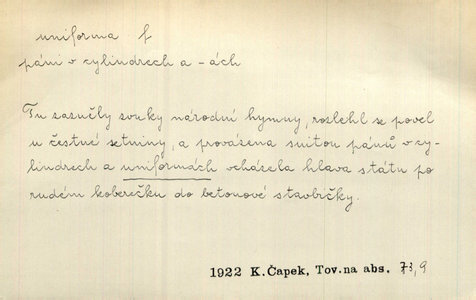 uniforma f
páni v cylindrech a -ách
Tu zazněly zvuky národní hymny, rozlehl se povel
u čestné setniny, a provázena suitou pánů v cy-
lindrech a uniformách vcházela hlava státu po
rudém koberečku do betonové stavbičky.
1922 K.Čapek, Tov.na abs. 73,9